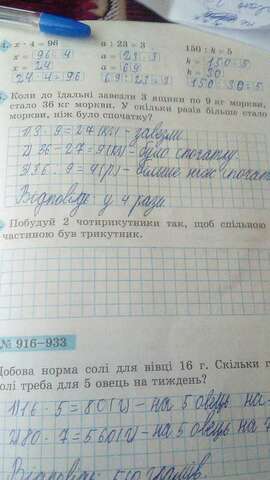 x · 4 = 96 a : 23 = 3 150 : k = 5
x = 96 : 4 a = 23 · 3 k = 150 : 5
x = 24 a = 69 k = 30
24 · 4 = 96 69 : 23 = 3 150 : 30 = 5
Коли до їдальні завезли 3 ящики по 9 кг моркви,
стало 36 кг моркви. У скільки разів більше стало
моркви, ніж було спочатку?
1) 3 · 9 = 27 (кг) - завезли.
2) 36 - 27 = 9 (кг) - було спочатку.
3) 36 : 9 = 4 (р) - більше ніж спочат
Відповідь: у 4 рази.
Побудуй 2 чотирикутники так, щоб спільною
частиною був трикутник.
№ 916–933
Добова норма солі для вівці 16 г. Скільки г
солі треба для 5 овець на тиждень?
1) 16 · 5 = 80 (г) - на 5 овець на
2) 80 · 7 = 560 (г) - на 5 овець на
Відповідь: 560 грамів.